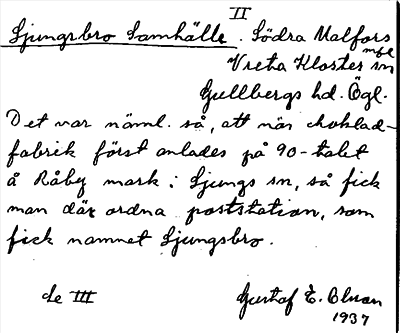 II
Ljungsbro Samhälle. Södra Malfors
mbl
Vreta Kloster sn
Gullbergs hd. Ögl.
Det var näml. så, att när choklad-
fabrik först anlades på 90-talet
å Råby mark i Ljungs sn, så fick
man där ordna poststation, som
fick namnet Ljungsbro.
de III
Gustaf E. Olsson
1937